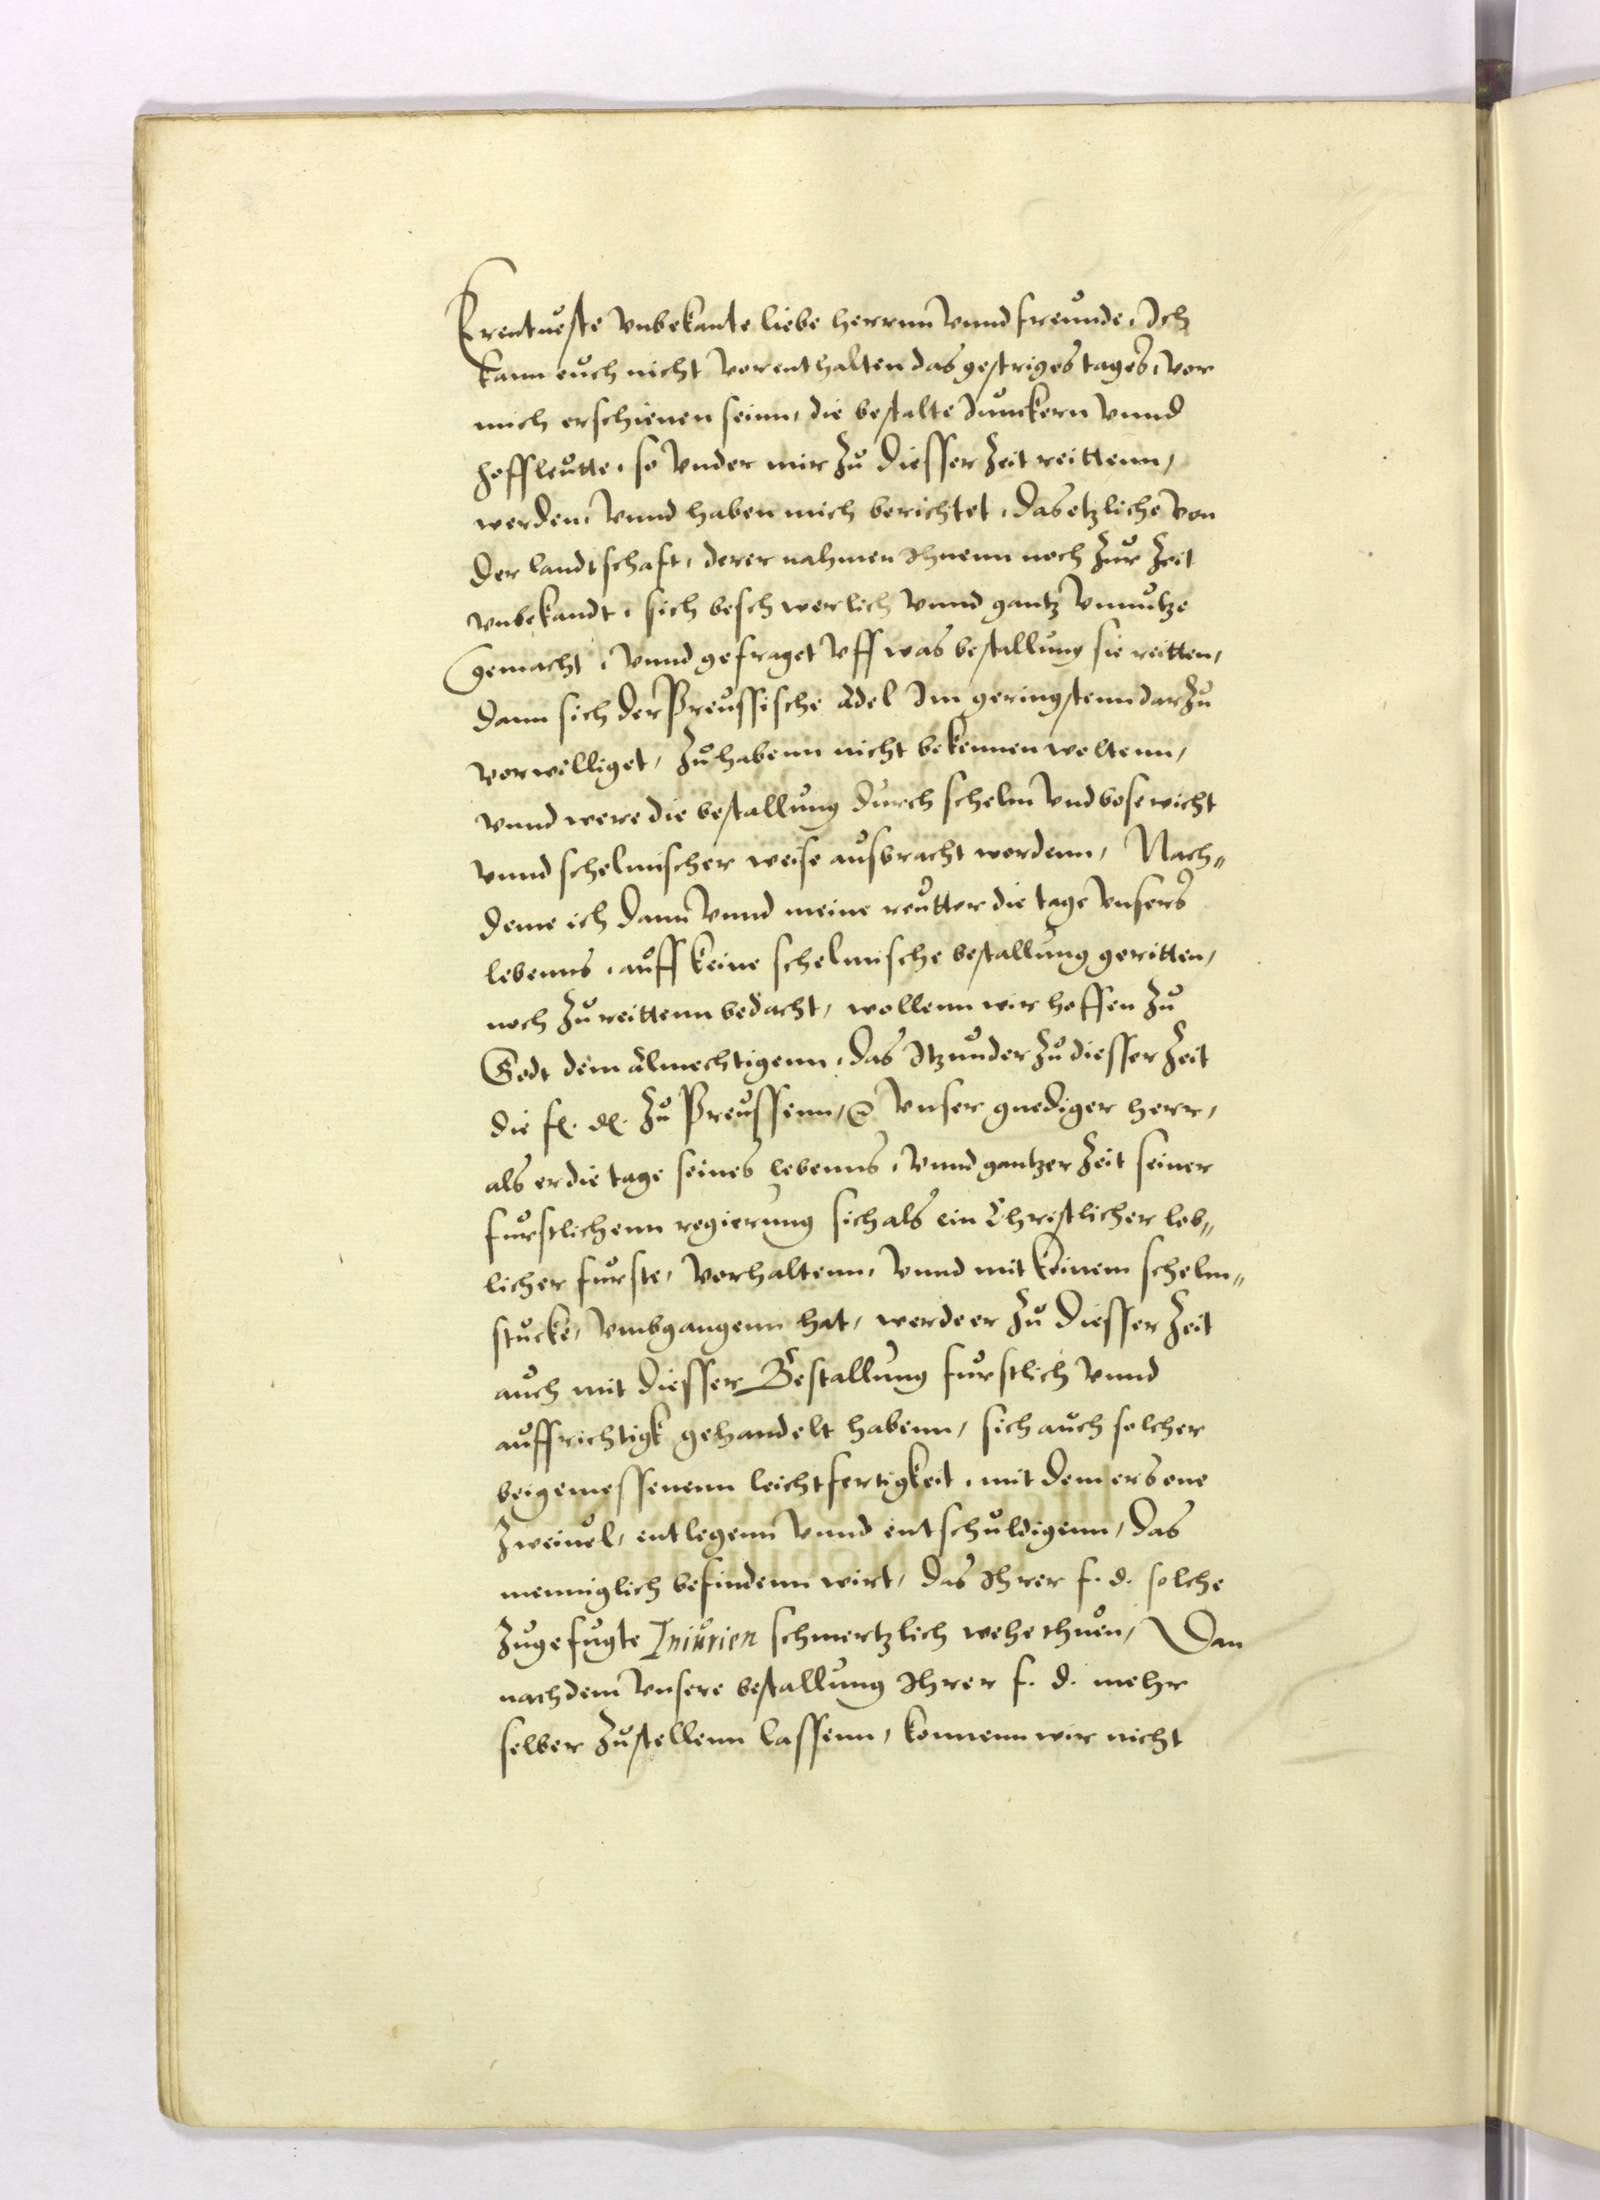 Erentueste vnbekante liebe herrnn vnnd freunde, Ich
kann euch nicht vorenthalten das gestriges tages, vor
mich erschienen seinn, die bestalte Junckern vnnd
hoffleutte, so vnder mir zu diesser zeit reittenn,
werden, vnnd haben mich berichtet, das etzliche von
der landtschafft, derer nahmen Ihnenn noch zur zeit
vnbekandt, sich beschwerlich vnnd gantz vnnutze
gemacht, vnnd gefraget vff was bestallung sie reitten,
dann sich der Preussische Adel Im geringstenn darzu
vorwilliget, zu habenn nicht bekennen woltenn,
vnnd were die bestallung durch schelm vnd bosewicht
vnnd schelmischer weise ausbracht wordenn, Nach-
deme ich dann vnnd meine reutter die tage vnsers
lebenns, auff keine schelmische bestallung geritten,
noch zu reittenn bedacht, wollenn wir hoffen zu
Godt dem Almechtigenn, das Itzunder zu diesser zeit
die f. d. zu Preussenn, vnser gnediger herr,
als er die tage seines lebenns, vnnd gantzer zeit seiner
furstlichenn regierung sich als ein Christlicher lob-
licher furste, vorhaltenn, vnnd mit keinem schelm-
stucke, vmbgangenn hat, werde er zu diesser zeit
auch mit diesser Bestallung furstlich vnnd
auffrichtigk gehandelt habenn, sich auch solcher
beigemessenenn leichtfertigkeit, mit dem ers one
zweiuel, entlegenn vnnd entschuldigenn, das
menniglich befindenn wirt, das Ihrer f. d. solche
zugefugte Iniurien schmertzlich wehe thuen, Dan
nachdem vnsere bestallung Ihrer f. d. mehr
selber zustellenn lassenn, konnenn wir nicht